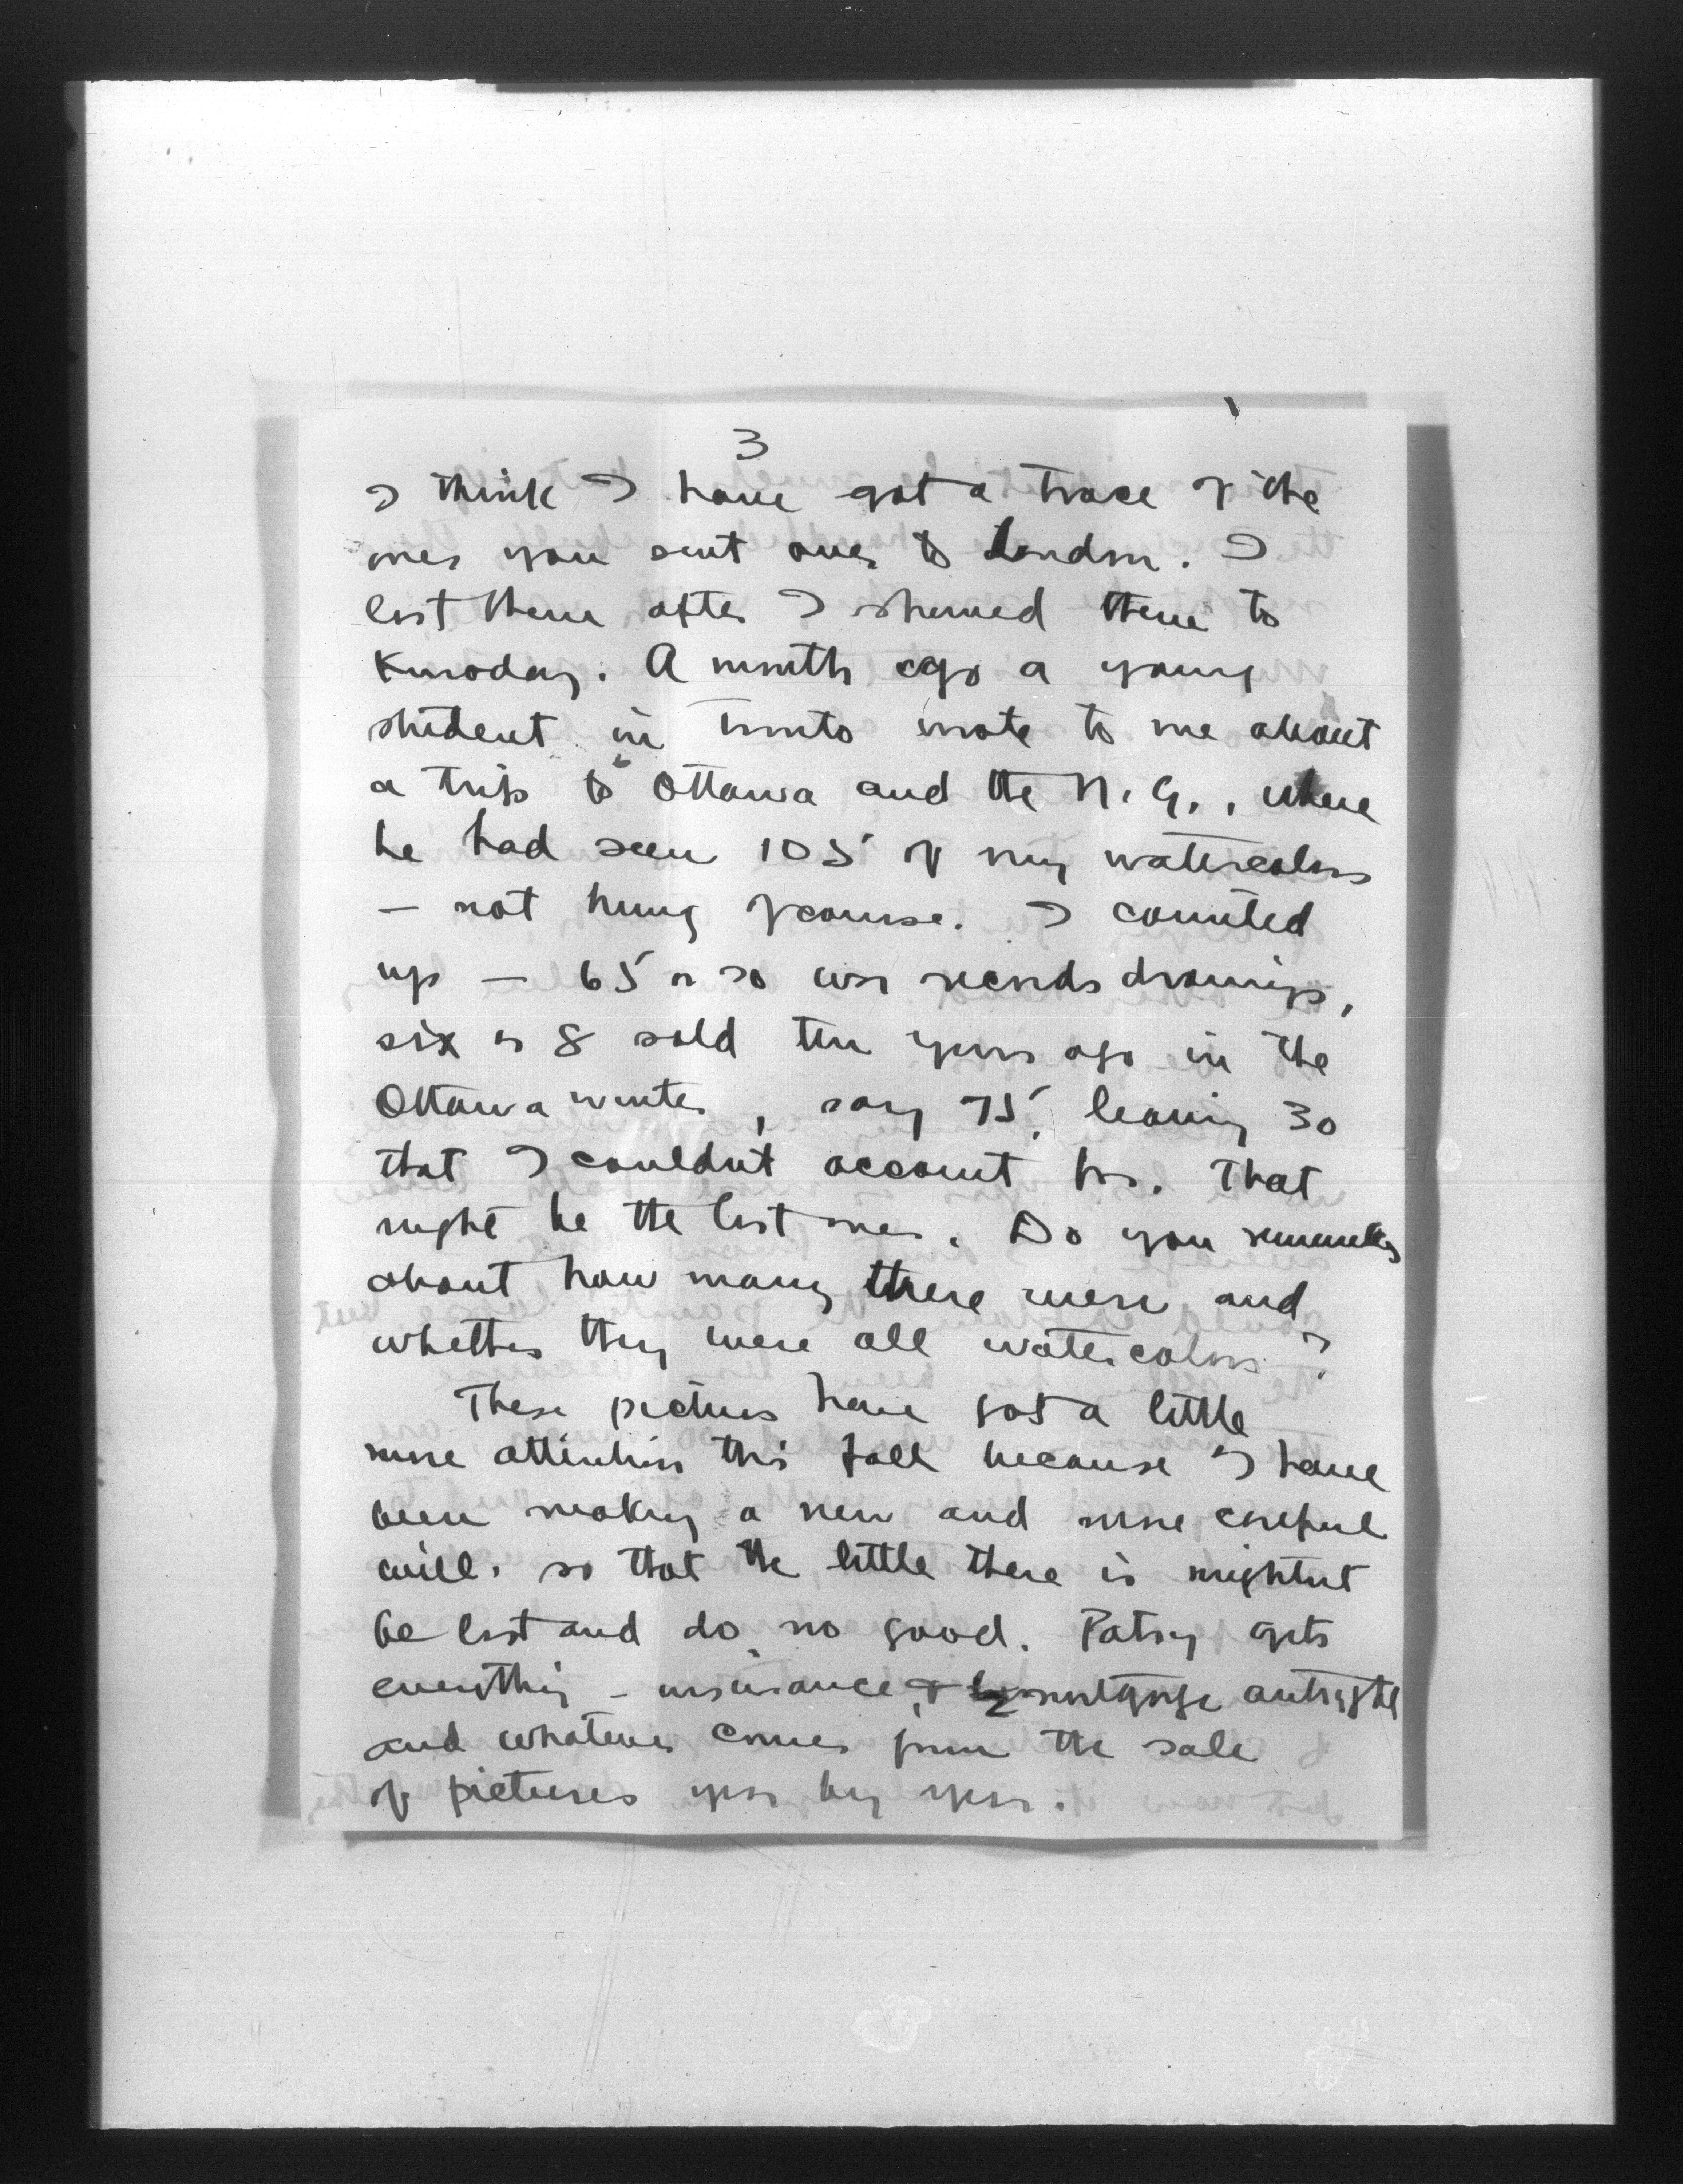 3
I think I have got a trace of the
ones you sent over to London. I
lost them after I showed them to
A month ago a young
student in Toronto wrote to me about
a trip to Ottawa and the N.G., where
he had seen 105 of my watercolors
— not hung of course. I counted
up — 65 or so war records drawings,
six or 8 sold ten years ago in the
Ottawa winter, say 75, leaving 30
that I couldnt account for. That
might be the lost ones. Do you remember
about how many there were and
whether they were all watercolors?
These pictures have got a little
more attention this fall because I have
been making a new and more careful
will. so that the little there is mightnt
be lost and do no good. Patsy gets
everything — insurance, & mortgage outright
and whatever comes from the sale
of pictures year by year.